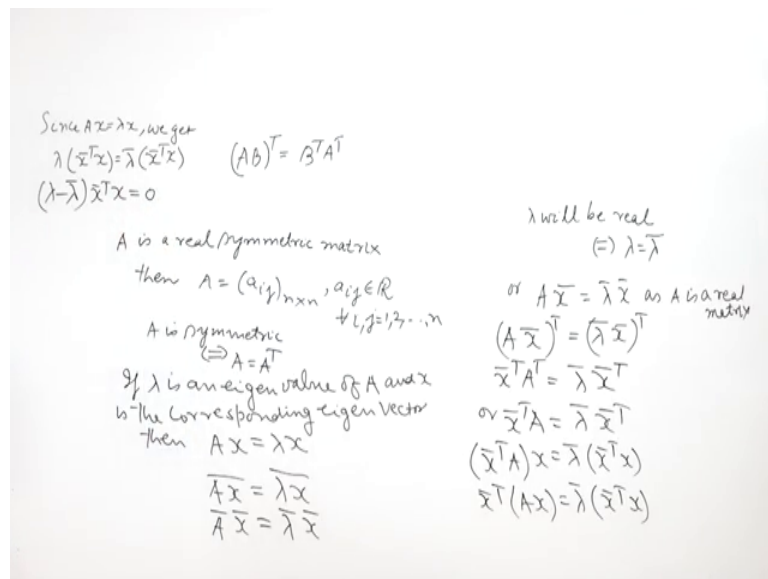 Since Ax=λx, we get
λ(x̄ᵀx)=λ̄(x̄ᵀx)
(λ-λ̄)x̄ᵀx=0
(AB)ᵀ= BᵀAᵀ
A is a real symmetric matrix
then A = (aᵢⱼ)ₙₓₙ, aᵢⱼ∈ℝ
∀ i,j=1,2,...,n
A is symmetric
⇔ A=Aᵀ
If λ is an eigen value of A and x
is the corresponding eigen vector
then Ax=λx
A̅x̅ = λ̅x̅
Ā x̄ = λ̄ x̄
λ will be real
⇔ λ=λ̄
or A x̄ = λ̄ x̄ as A is a real
matrix
(A x̄)ᵀ = (λ̄ x̄)ᵀ
x̄ᵀAᵀ = λ̄ x̄ᵀ
or x̄ᵀA = λ̄ x̄ᵀ
(x̄ᵀA)x = λ̄(x̄ᵀx)
x̄ᵀ(Ax)=λ̄(x̄ᵀx)